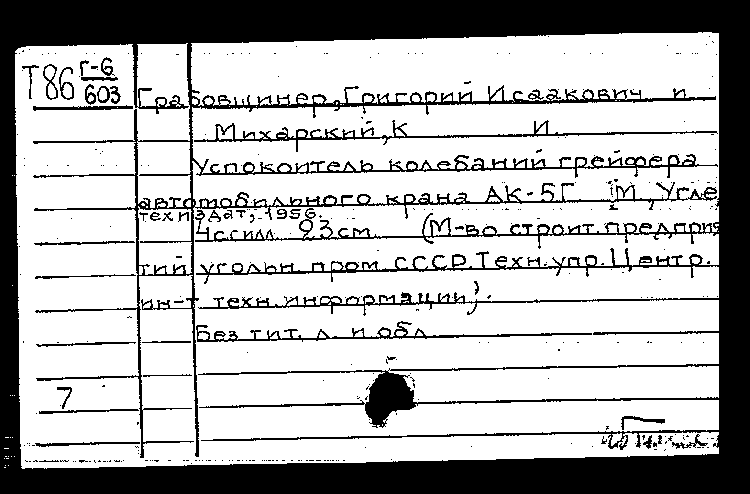 Т86 Г-6
603
Грабовщинер, Григорий Исаакович и
Михарский, К И.
Успокоитель колебаний грейфера
автомобильного крана АК-5Г М, Угле
техиздат, 1956.
4с с илл. 23см. (М-во строит. предприя
тий угольн. пром. СССР. Техн. упр. Центр.
ин-т техн. информации).
Без тит. л. и обл
7